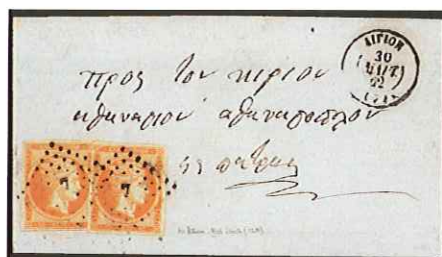 ΑΙΓΙΟΝ
30
62
προς τον κυριον
αθανασιον αθανασοπουλον
εις πατρας
7 7